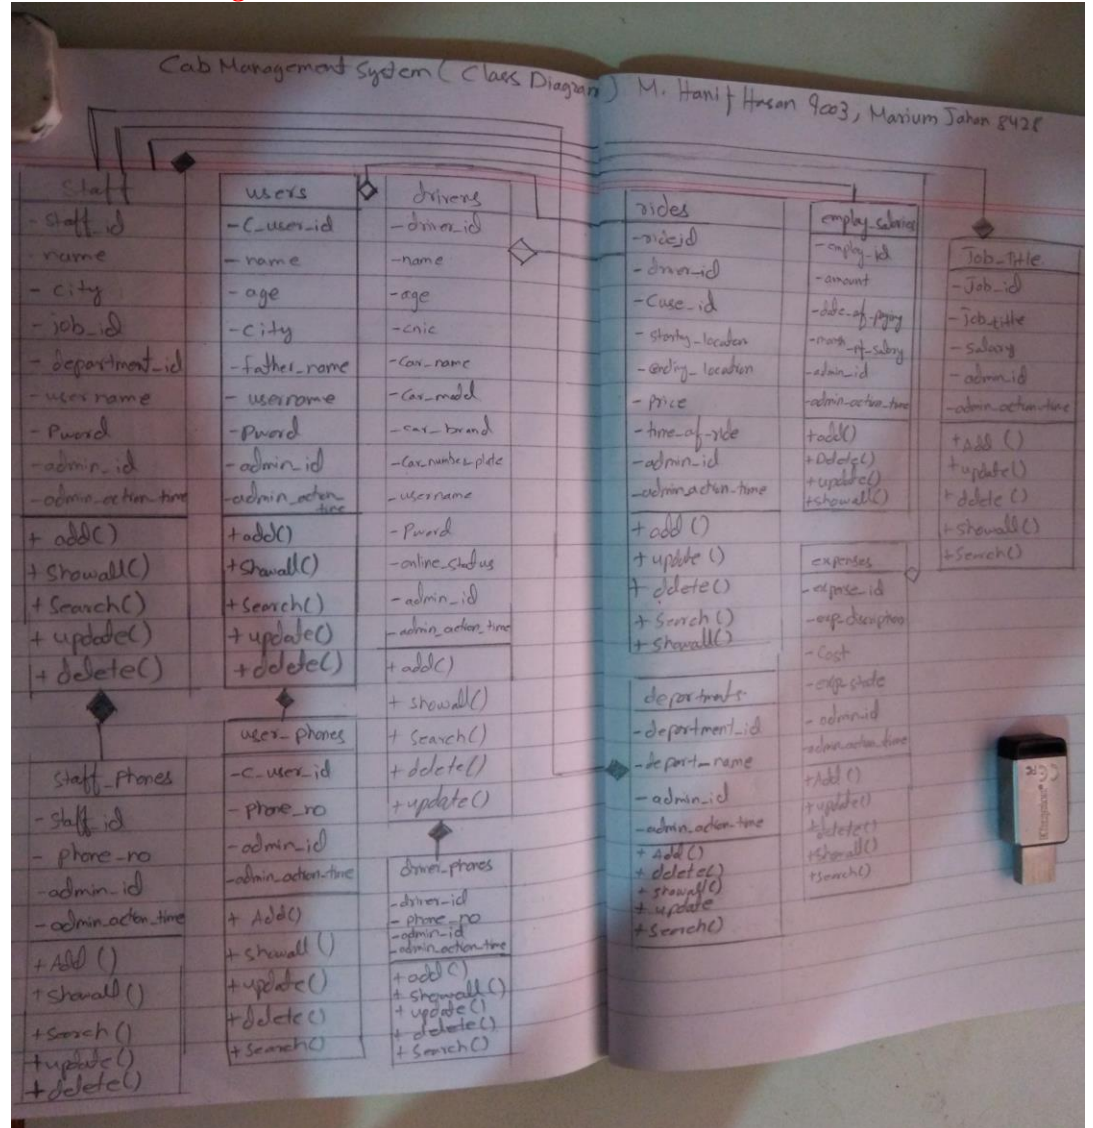 Cab Management System ( Class Diagram ) M. Hanif Hasan 9003, Marium Jahan 8428
Staff
- staff_id
- name
- city
- job_id
- department_id
- username
- Pword
- admin_id
- admin_action_time
+ add()
+ showall()
+ Search()
+ update()
+ delete()
staff_phones
- staff_id
- phone_no
- admin_id
- admin_action_time
+ Add ()
+ showall ()
+ Search ()
+ update()
+ delete()
users
- C_user_id
- name
- age
- City
- father_name
- username
- Pword
- admin_id
- admin_action_
time
+ add()
+ showall()
+ Search()
+ update()
+ delete()
user_phones
- c_user_id
- phone_no
- admin_id
- admin_action_time
+ Add()
+ showall ()
+ update()
+ delete()
+ Search()
drivers
- driver_id
- name
- age
- cnic
- Car_name
- Car_model
- car_brand
- Car_number_plate
- username
- Pword
- online_status
- admin_id
- admin_action_time
+ add()
+ showall()
+ Search()
+ delete()
+ update()
driver_phones
- driver_id
- phone_no
- admin_id
- admin_action_time
+ add()
+ showall()
+ update()
+ delete()
+ Search()
rides
- driver_id
- location
- Price
- time_of_ride
- admin_id
- admin_action_time
+ add ()
+ update ()
+ delete()
+ Search ()
+ showall()
departments
- department_id
- depart_name
- admin_id
- admin_action_time
+ Add()
+ delete()
+ showall()
+ update
+ Search()
- amount
- admin_id
- admin_action_time
+ add()
+ Delete()
+ update()
+ showall()
expenses
- Cost
- admin_id
- admin_action_time
+ Add ()
+ update()
+ delete()
+ showall()
+ Search()
Job_title
- Job_id
- job_title
- Salary
- admin_id
- admin_action_time
+ Add ()
+ update()
+ delete ()
+ showall()
+ Search()
Kingston